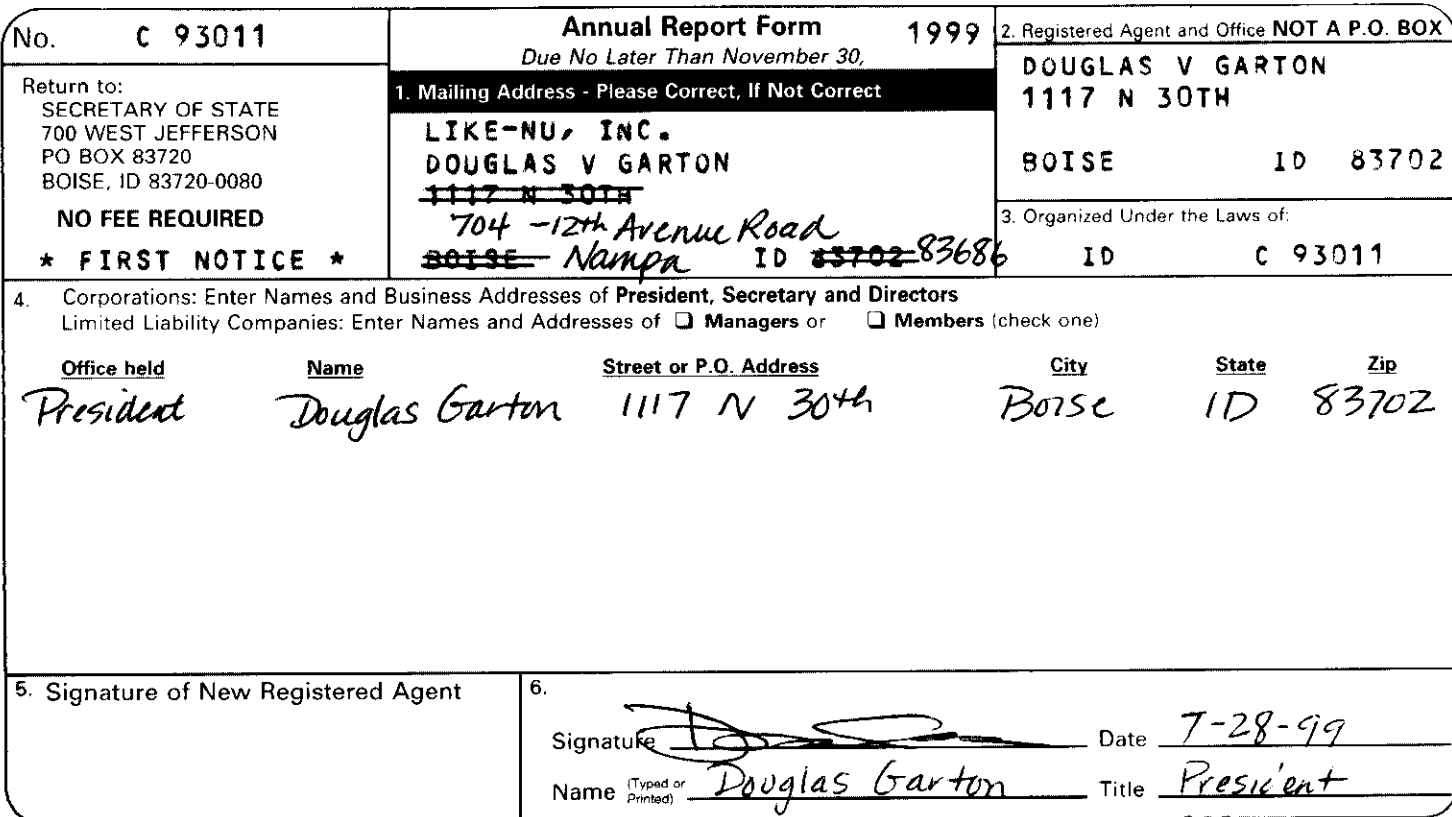 No. C 93011
Return to:
SECRETARY OF STATE
700 WEST JEFFERSON
PO BOX 83720
BOISE, ID 83720-0080
NO FEE REQUIRED
* FIRST NOTICE *
Annual Report Form 1999
Due No Later Than November 30,
1. Mailing Address - Please Correct, If Not Correct
LIKE-NU, INC.
DOUGLAS V GARTON
1117 N 30TH
704 -12th Avenue Road
BOISE Nampa ID 83702 83686
2. Registered Agent and Office NOT A P.O. BOX
DOUGLAS V GARTON
1117 N 30TH
BOISE ID 83702
3. Organized Under the Laws of:
ID C 93011
4. Corporations: Enter Names and Business Addresses of President, Secretary and Directors
Limited Liability Companies: Enter Names and Addresses of ❏ Managers or ❏ Members (check one)
Office held Name Street or P.O. Address City State Zip
President Douglas Garton 1117 N 30th Boise ID 83702
5. Signature of New Registered Agent
6.
Signature Date 7-28-99
Name (Typed or Printed) Douglas Garton Title President